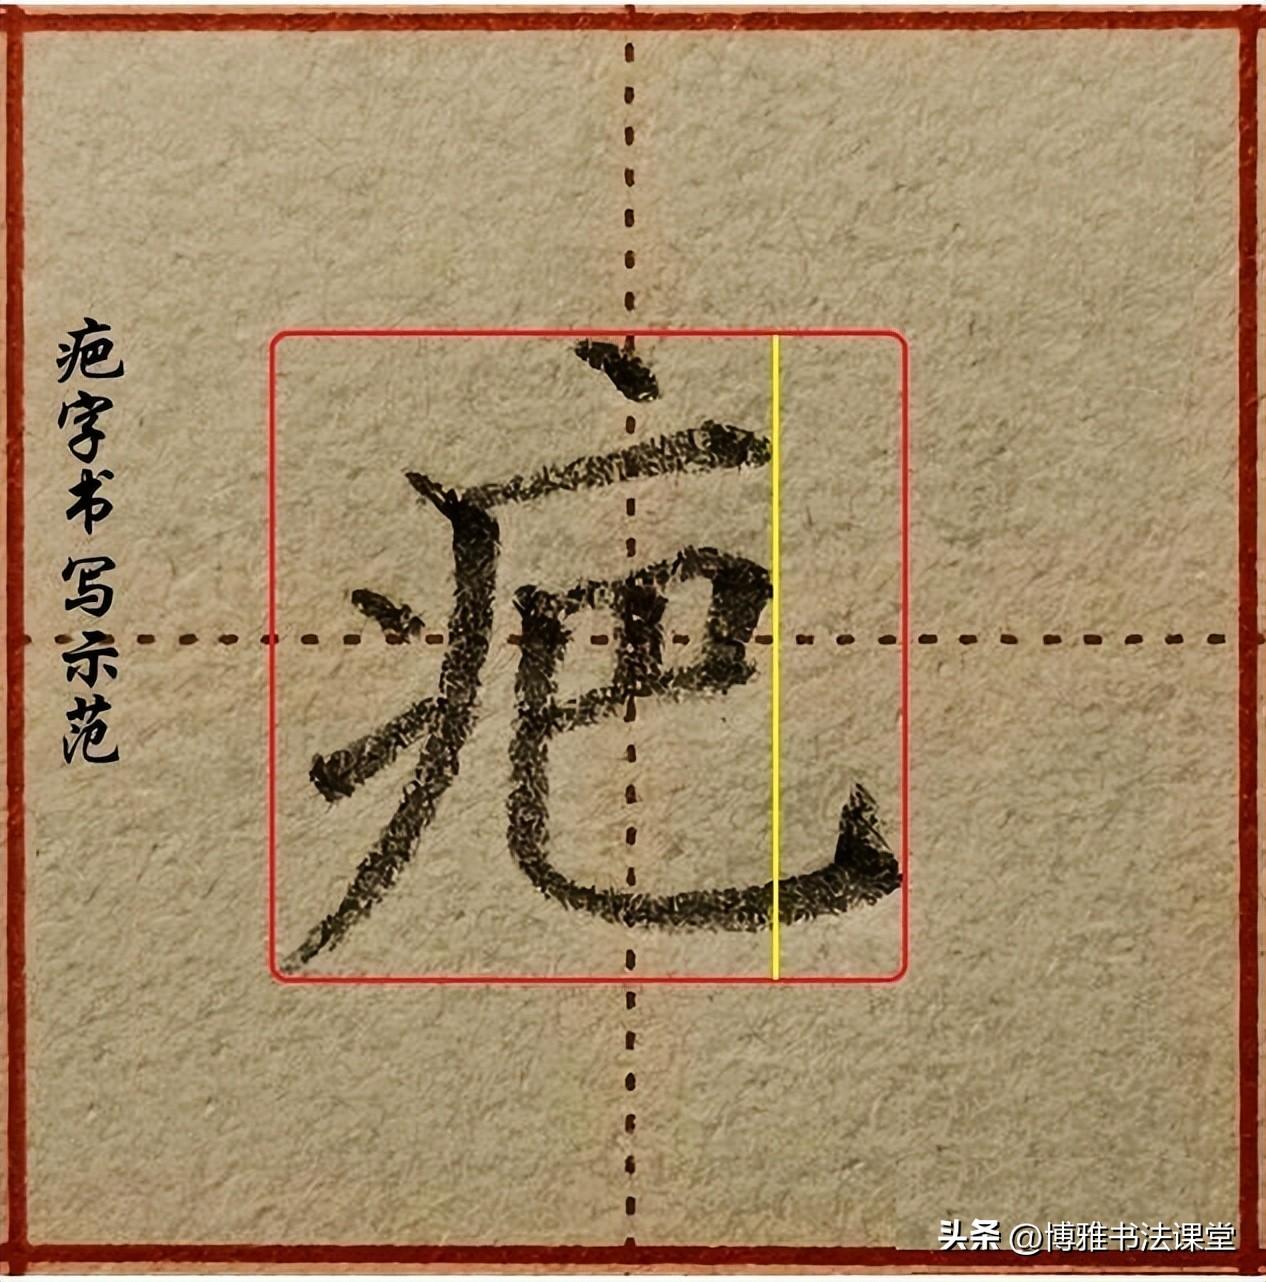 疤字书写示范
疤
头条 @博雅书法课堂